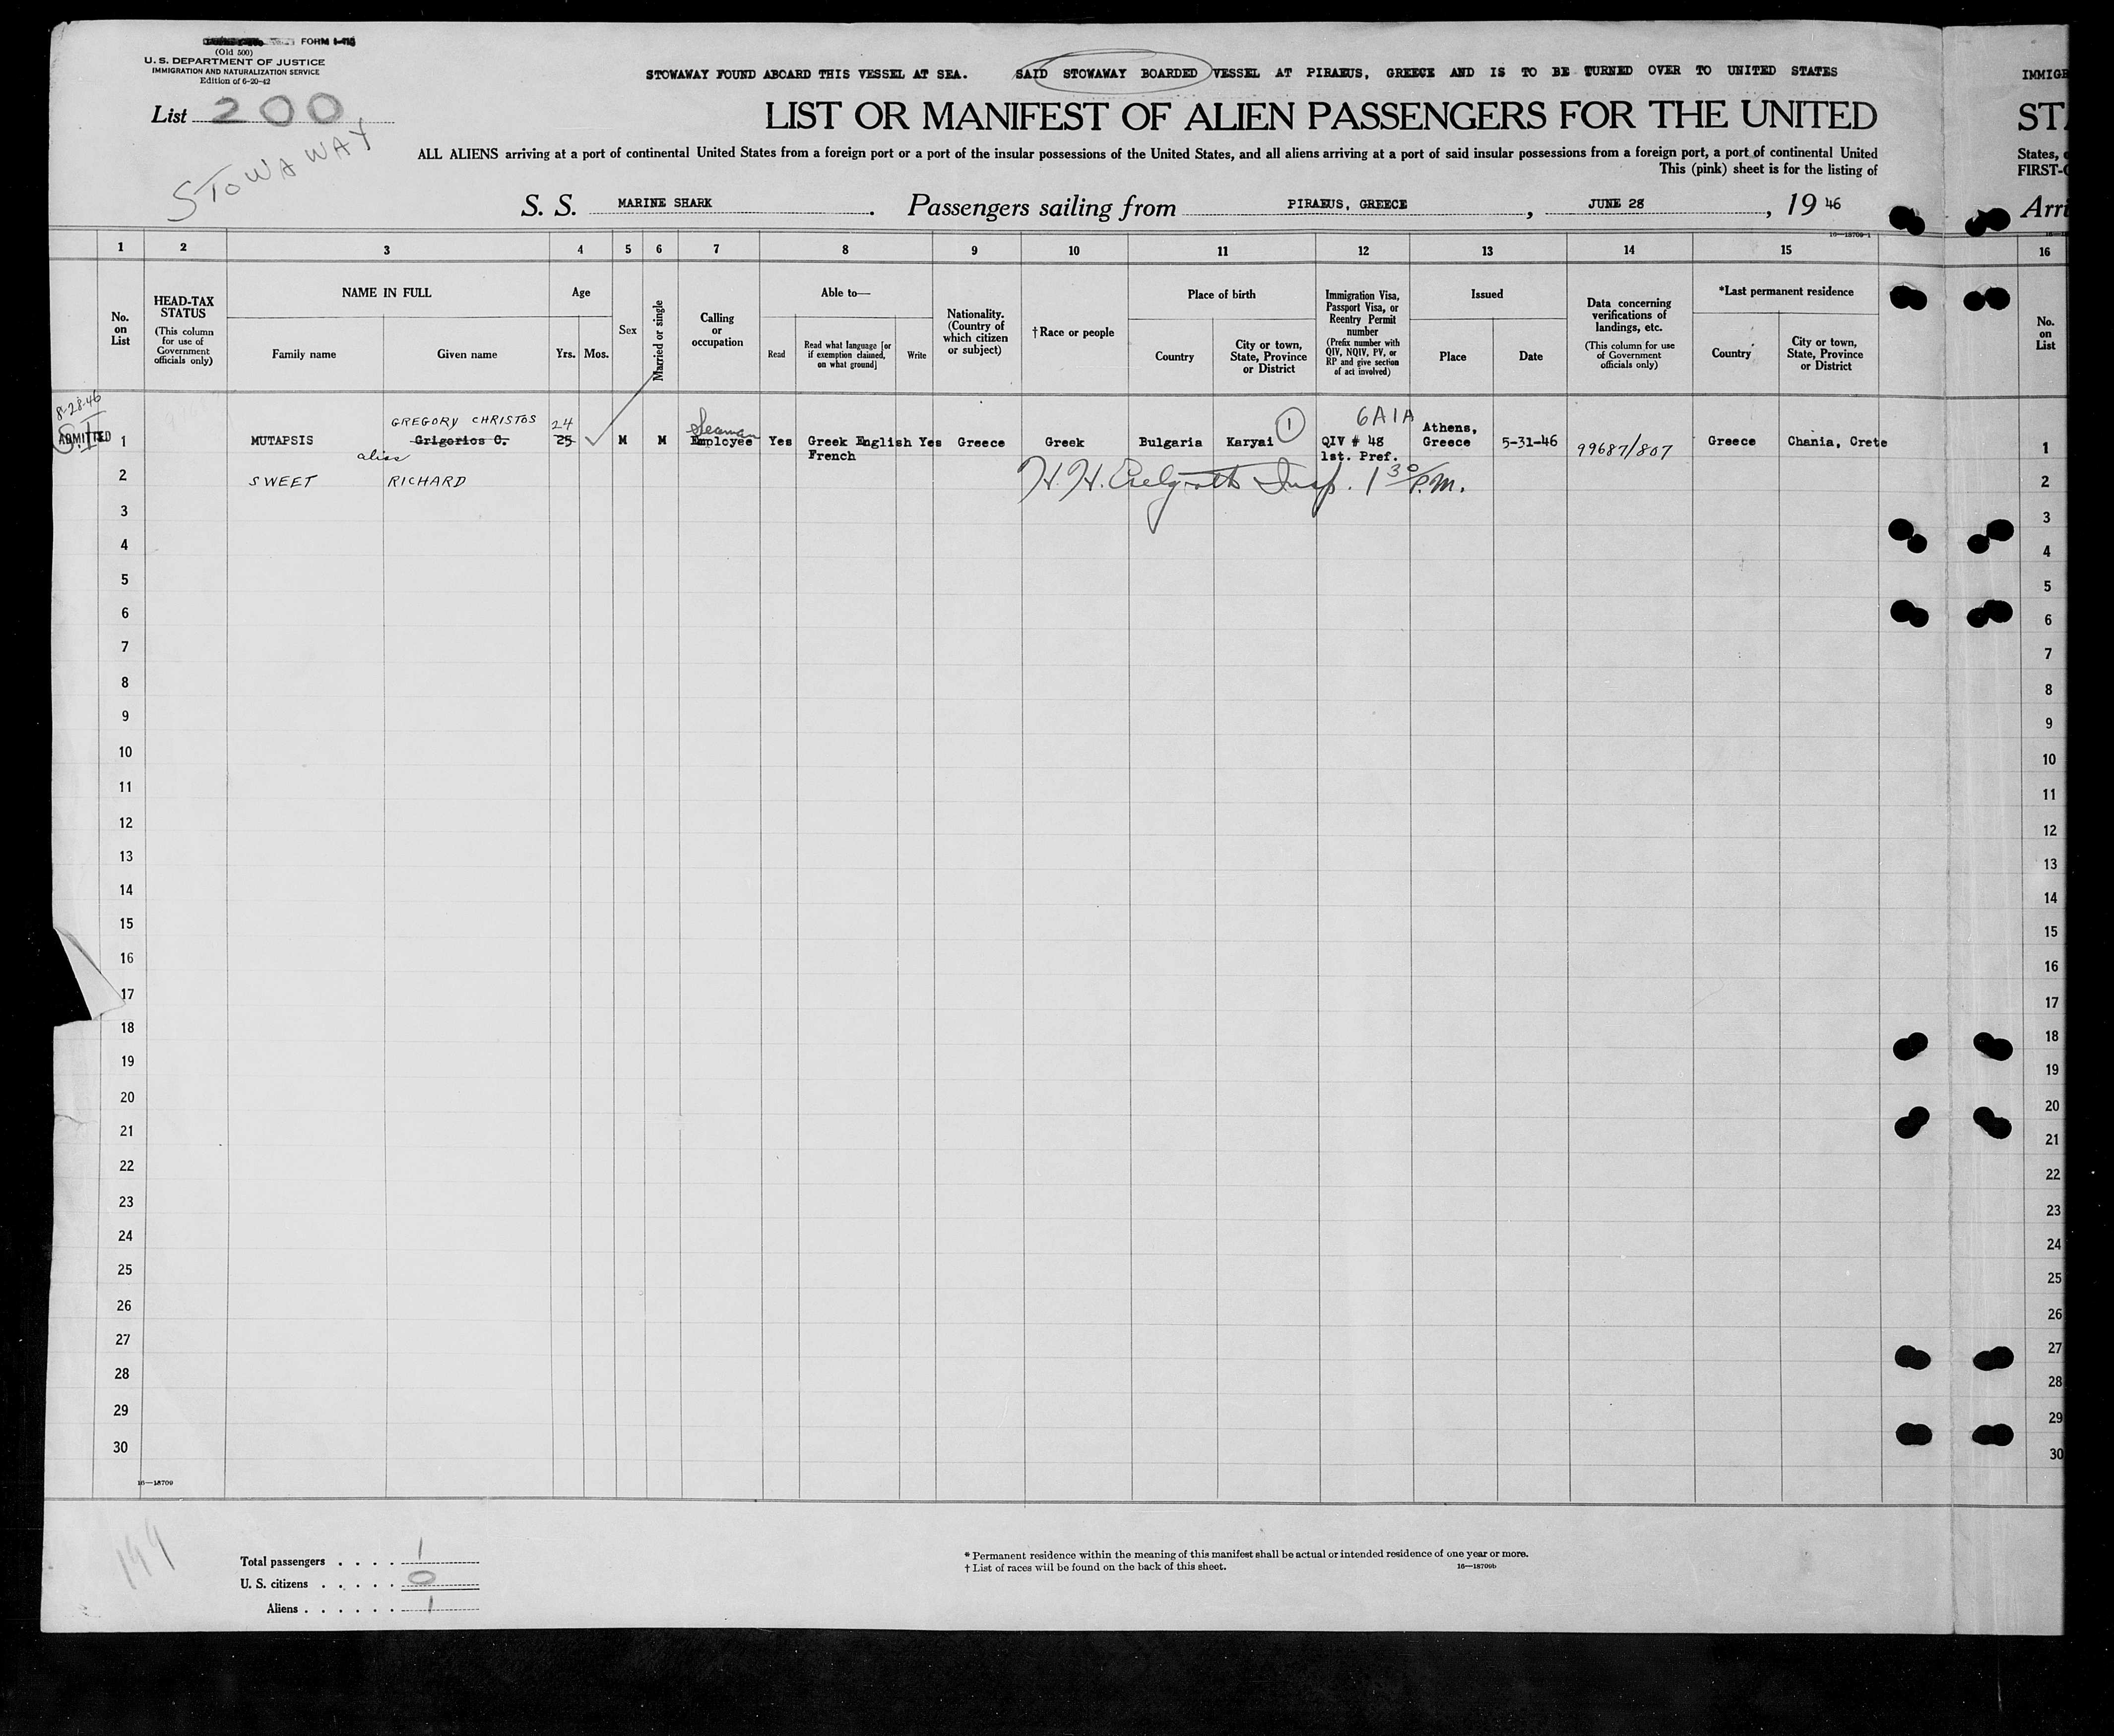 FORM I-415
(Old 500)
U. S. DEPARTMENT OF JUSTICE
IMMIGRATION AND NATURALIZATION SERVICE
Edition of 6-20-42
List 200
STOWAWAY
STOWAWAY FOUND ABOARD THIS VESSEL AT SEA. SAID STOWAWAY BOARDED VESSEL AT PIRAEUS, GREECE AND IS TO BE TURNED OVER TO UNITED STATES
IMMIGR
LIST OR MANIFEST OF ALIEN PASSENGERS FOR THE UNITED
STA
ALL ALIENS arriving at a port of continental United States from a foreign port or a port of the insular possessions of the United States, and all aliens arriving at a port of said insular possessions from a foreign port, a port of continental United
States, o
This (pink) sheet is for the listing of
FIRST-C
S. S. MARINE SHARK. Passengers sailing from PIRAEUS, GREECE, JUNE 28, 19 46
Arri
16—18709-1
1 2 3 4 5 6 7 8 9 10 11 12 13 14 15 16
No. on List
HEAD-TAX STATUS
(This column for use of Government officials only)
NAME IN FULL
Family name
Given name
Age
Yrs.
Mos.
Sex
Married or single
Calling or occupation
Able to—
Read
Read what language [or if exemption claimed, on what ground]
Write
Nationality. (Country of which citizen or subject)
†Race or people
Place of birth
Country
City or town, State, Province or District
Immigration Visa, Passport Visa, or Reentry Permit number
(Prefix number with QIV, NQIV, PV, or RP and give section of act involved)
Issued
Place
Date
Data concerning verifications of landings, etc.
(This column for use of Government officials only)
*Last permanent residence
Country
City or town, State, Province or District
No. on List
8-28-46
S.I.
GREGORY CHRISTOS 24 Seaman 1 6A1A
ADMITTED 1 MUTAPSIS Grigorios C. 25 M M Employee Yes Greek English Yes Greece Greek Bulgaria Karyai QIV # 48 Athens, Greece 5-31-46 99687/807 Greece Chania, Crete 1
alias French 1st. Pref.
2 SWEET RICHARD H. H. Insp. 1 30 P.M. 2
3 3
4 4
5 5
6 6
7 7
8 8
9 9
10 10
11 11
12 12
13 13
14 14
15 15
16 16
17 17
18 18
19 19
20 20
21 21
22 22
23 23
24 24
25 25
26 26
27 27
28 28
29 29
30 30
16—18709
199
Total passengers . . . . 1
U. S. citizens . . . . . 0
Aliens . . . . . . 1
* Permanent residence within the meaning of this manifest shall be actual or intended residence of one year or more.
† List of races will be found on the back of this sheet.
16—18709b